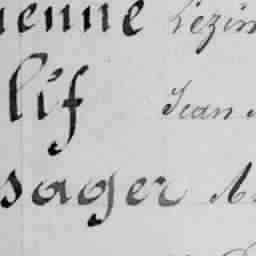 ienne Lézim
lif Jean
sager